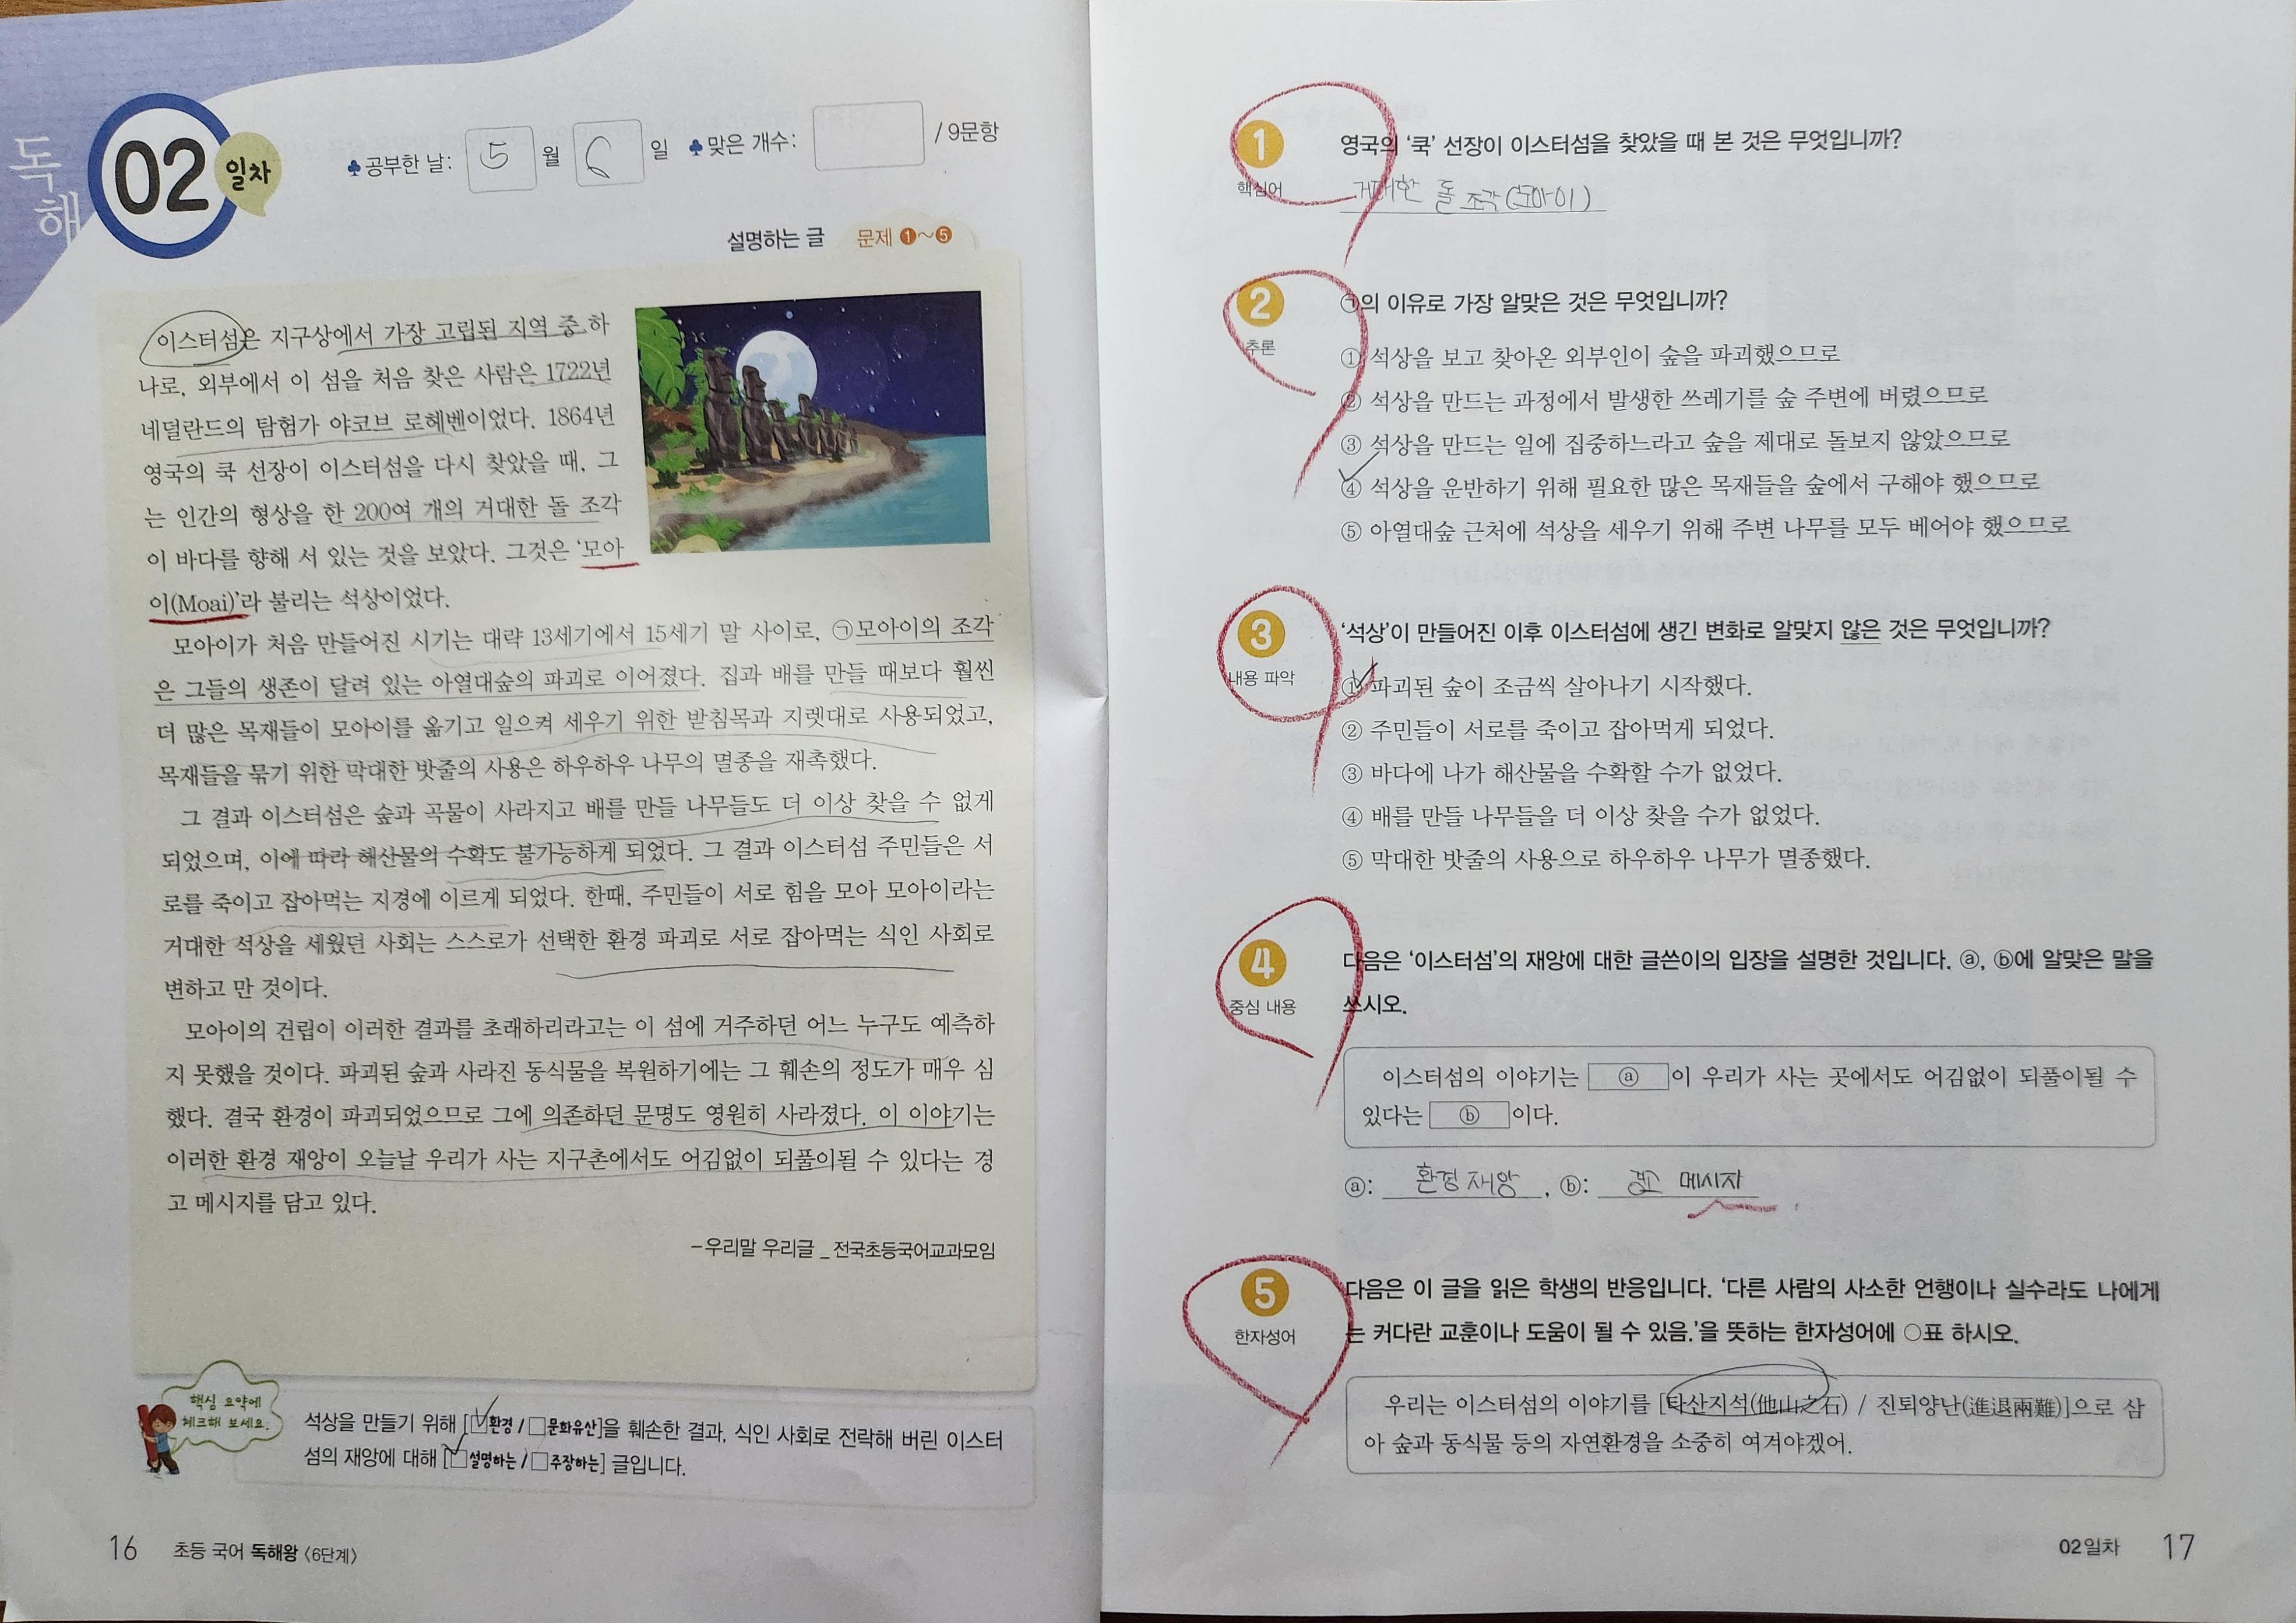 독해
02 일차
♣공부한 날: 5 월 6 일 ♣맞은 개수: / 9문항
설명하는 글 문제 ❶~❺
이스터섬은 지구상에서 가장 고립된 지역 중 하
나로, 외부에서 이 섬을 처음 찾은 사람은 1722년
네덜란드의 탐험가 야코브 로헤벤이었다. 1864년
영국의 쿡 선장이 이스터섬을 다시 찾았을 때, 그
는 인간의 형상을 한 200여 개의 거대한 돌 조각
이 바다를 향해 서 있는 것을 보았다. 그것은 '모아
이(Moai)'라 불리는 석상이었다.
모아이가 처음 만들어진 시기는 대략 13세기에서 15세기 말 사이로, ㉠모아이의 조각
은 그들의 생존이 달려 있는 아열대숲의 파괴로 이어졌다. 집과 배를 만들 때보다 훨씬
더 많은 목재들이 모아이를 옮기고 일으켜 세우기 위한 받침목과 지렛대로 사용되었고,
목재들을 묶기 위한 막대한 밧줄의 사용은 하우하우 나무의 멸종을 재촉했다.
그 결과 이스터섬은 숲과 곡물이 사라지고 배를 만들 나무들도 더 이상 찾을 수 없게
되었으며, 이에 따라 해산물의 수확도 불가능하게 되었다. 그 결과 이스터섬 주민들은 서
로를 죽이고 잡아먹는 지경에 이르게 되었다. 한때, 주민들이 서로 힘을 모아 모아이라는
거대한 석상을 세웠던 사회는 스스로가 선택한 환경 파괴로 서로 잡아먹는 식인 사회로
변하고 만 것이다.
모아이의 건립이 이러한 결과를 초래하리라고는 이 섬에 거주하던 어느 누구도 예측하
지 못했을 것이다. 파괴된 숲과 사라진 동식물을 복원하기에는 그 훼손의 정도가 매우 심
했다. 결국 환경이 파괴되었으므로 그에 의존하던 문명도 영원히 사라졌다. 이 이야기는
이러한 환경 재앙이 오늘날 우리가 사는 지구촌에서도 어김없이 되풀이될 수 있다는 경
고 메시지를 담고 있다.
-우리말 우리글 _ 전국초등국어교과모임
핵심 요약에
체크해 보세요.
석상을 만들기 위해 [☑환경 / □문화유산]을 훼손한 결과, 식인 사회로 전락해 버린 이스터
섬의 재앙에 대해 [☑설명하는 / □주장하는] 글입니다.
16 초등 국어 독해왕 〈6단계〉
1 영국의 '쿡' 선장이 이스터섬을 찾았을 때 본 것은 무엇입니까?
핵심어 거대한 돌 조각(모아이)
2 ㉠의 이유로 가장 알맞은 것은 무엇입니까?
추론
① 석상을 보고 찾아온 외부인이 숲을 파괴했으므로
② 석상을 만드는 과정에서 발생한 쓰레기를 숲 주변에 버렸으므로
③ 석상을 만드는 일에 집중하느라고 숲을 제대로 돌보지 않았으므로
④ 석상을 운반하기 위해 필요한 많은 목재들을 숲에서 구해야 했으므로
⑤ 아열대숲 근처에 석상을 세우기 위해 주변 나무를 모두 베어야 했으므로
3 '석상'이 만들어진 이후 이스터섬에 생긴 변화로 알맞지 않은 것은 무엇입니까?
내용 파악
① 파괴된 숲이 조금씩 살아나기 시작했다.
② 주민들이 서로를 죽이고 잡아먹게 되었다.
③ 바다에 나가 해산물을 수확할 수가 없었다.
④ 배를 만들 나무들을 더 이상 찾을 수가 없었다.
⑤ 막대한 밧줄의 사용으로 하우하우 나무가 멸종했다.
4 다음은 '이스터섬'의 재앙에 대한 글쓴이의 입장을 설명한 것입니다. ⓐ, ⓑ에 알맞은 말을
중심 내용 쓰시오.
이스터섬의 이야기는 ⓐ 이 우리가 사는 곳에서도 어김없이 되풀이될 수
있다는 ⓑ 이다.
ⓐ: 환경 재앙 , ⓑ: 경고 메시지
5 다음은 이 글을 읽은 학생의 반응입니다. '다른 사람의 사소한 언행이나 실수라도 나에게
한자성어 는 커다란 교훈이나 도움이 될 수 있음.'을 뜻하는 한자성어에 ○표 하시오.
우리는 이스터섬의 이야기를 [타산지석(他山之石) / 진퇴양난(進退兩難)]으로 삼
아 숲과 동식물 등의 자연환경을 소중히 여겨야겠어.
02일차 17